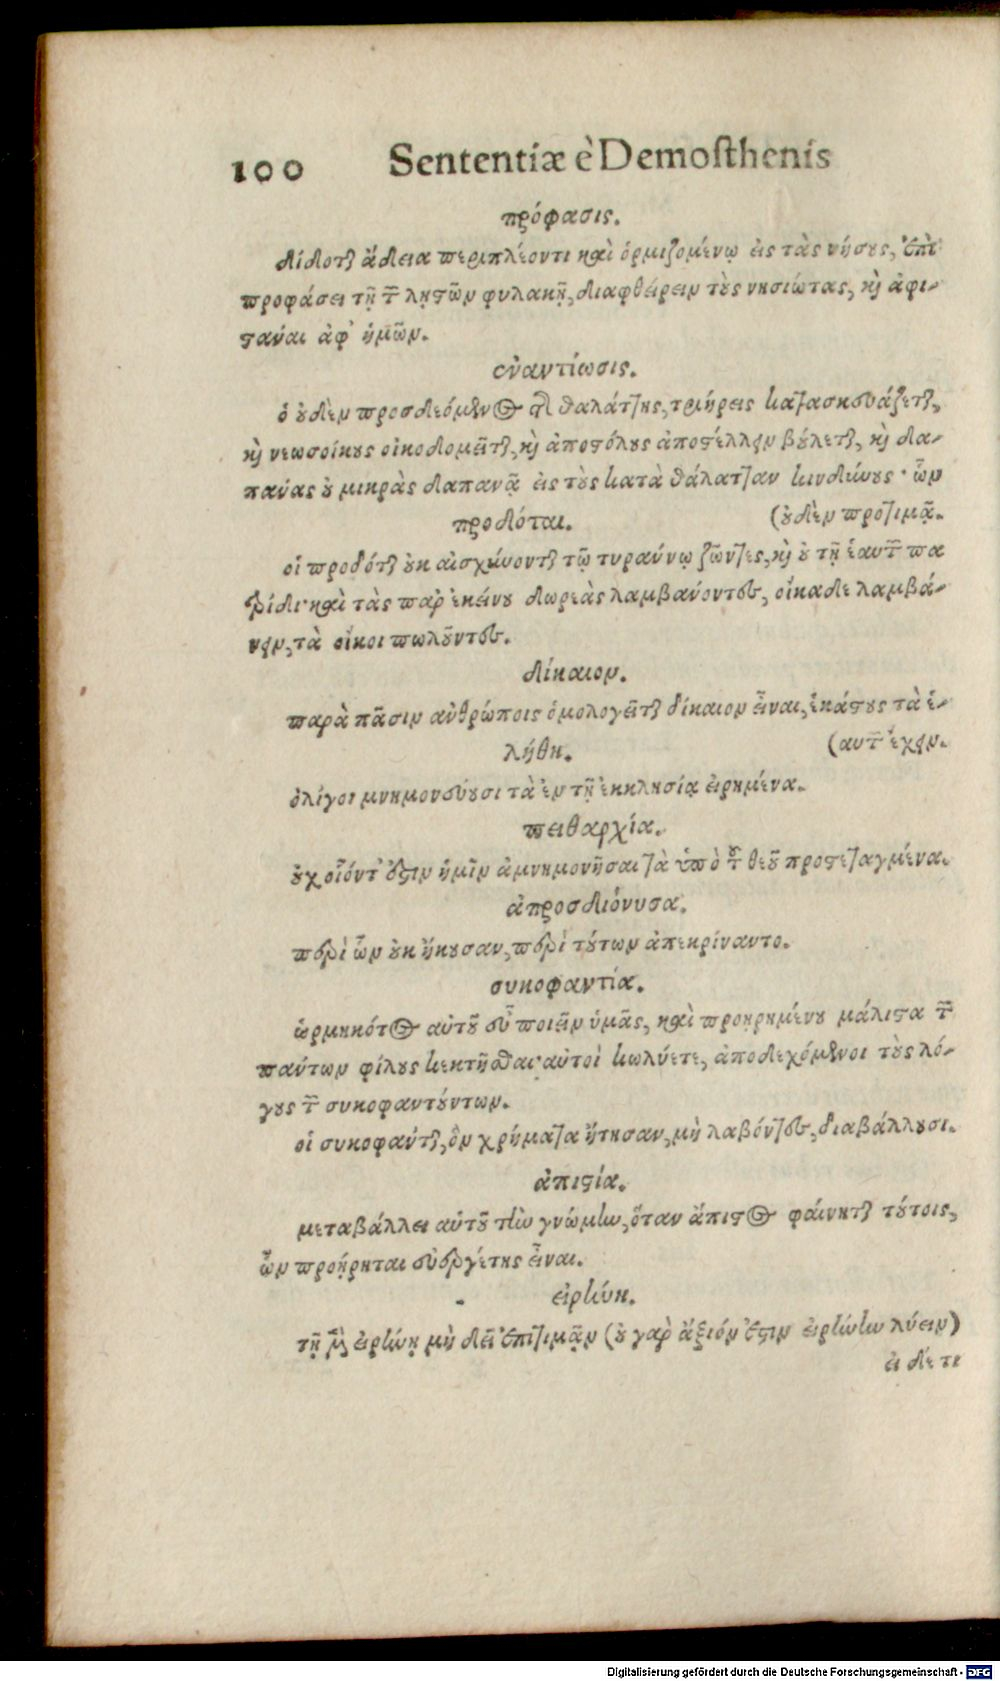 100 Sententiæ è Demosthenis
πρόφασις.
δίδοται ἄδεια περιπλέοντι καὶ ὁρμιζομένῳ εἰς τὰς νήσους, ἐπὶ
προφάσει τῇ τῶν λῃστῶν φυλακῇ, διαφθείρειν τοὺς νησιώτας, καὶ ἀφι-
στάναι ἀφ' ἡμῶν.
ἐναντίωσις.
ὁ οὐδὲν προσδεόμενος τῆς θαλάττης, τριήρεις κατασκευάζεται,
καὶ νεωσοίκους οἰκοδομεῖται, καὶ ἀποστόλους ἀποστέλλειν βούλεται, καὶ δα-
πάνας οὐ μικρὰς δαπανᾷ εἰς τοὺς κατὰ θάλατταν κινδύνους· ὧν
προδόται. (οὐδὲν προτιμᾷ.
οἱ προδόται οὐκ αἰσχύνονται τῷ τυράννῳ ζῶντες, καὶ οὐ τῇ ἑαυτῶν πα
τρίδι· καὶ τὰς παρ' ἐκείνου δωρεὰς λαμβάνοντες, οἴκαδε λαμβά-
νειν, τὰ οἴκοι πωλοῦντες.
δίκαιον.
παρὰ πᾶσιν ἀνθρώποις ὁμολογεῖται δίκαιον εἶναι, ἑκάστους τὰ ἑ-
λήθη. (αυτῶν ἔχειν.
ὀλίγοι μνημονεύουσι τὰ ἐν τῇ ἐκκλησίᾳ εἰρημένα.
πειθαρχία.
οὐχ οἷόντ' ἐστιν ἡμῖν ἀμνημονῆσαι τὰ ὑπὸ τοῦ θεοῦ προστεταγμένα.
ἀπροσδιόνυσα.
περὶ ὧν οὐκ ἤκουσαν, περὶ τούτων ἀπεκρίναντο.
συκοφαντία.
ὡρμηκότος αὐτοῦ εὖ ποιεῖν ὑμᾶς, καὶ προῃρημένου μάλιστα τῶν
πάντων φίλους κεκτῆσθαι· αὐτοὶ κωλύετε, ἀποδεχόμενοι τοὺς λό-
γους τῶν συκοφαντούντων.
οἱ συκοφάνται, ὃν χρήματα ᾔτησαν, μὴ λαβόντες, διαβάλλουσι.
ἀπιστία.
μεταβάλλει αὐτοῦ τὴν γνώμην, ὅταν ἄπιστος φαίνηται τούτοις,
ὧν προῄρηται εὐεργέτης εἶναι.
εἰρήνη.
τῇ μὲν εἰρήνῃ μὴ δεῖ ἐπιτιμᾷν (οὐ γὰρ ἄξιόν ἐστιν εἰρήνην λύειν)
εἰ δέ τι
Digitalisierung gefördert durch die Deutsche Forschungsgemeinschaft - DFG